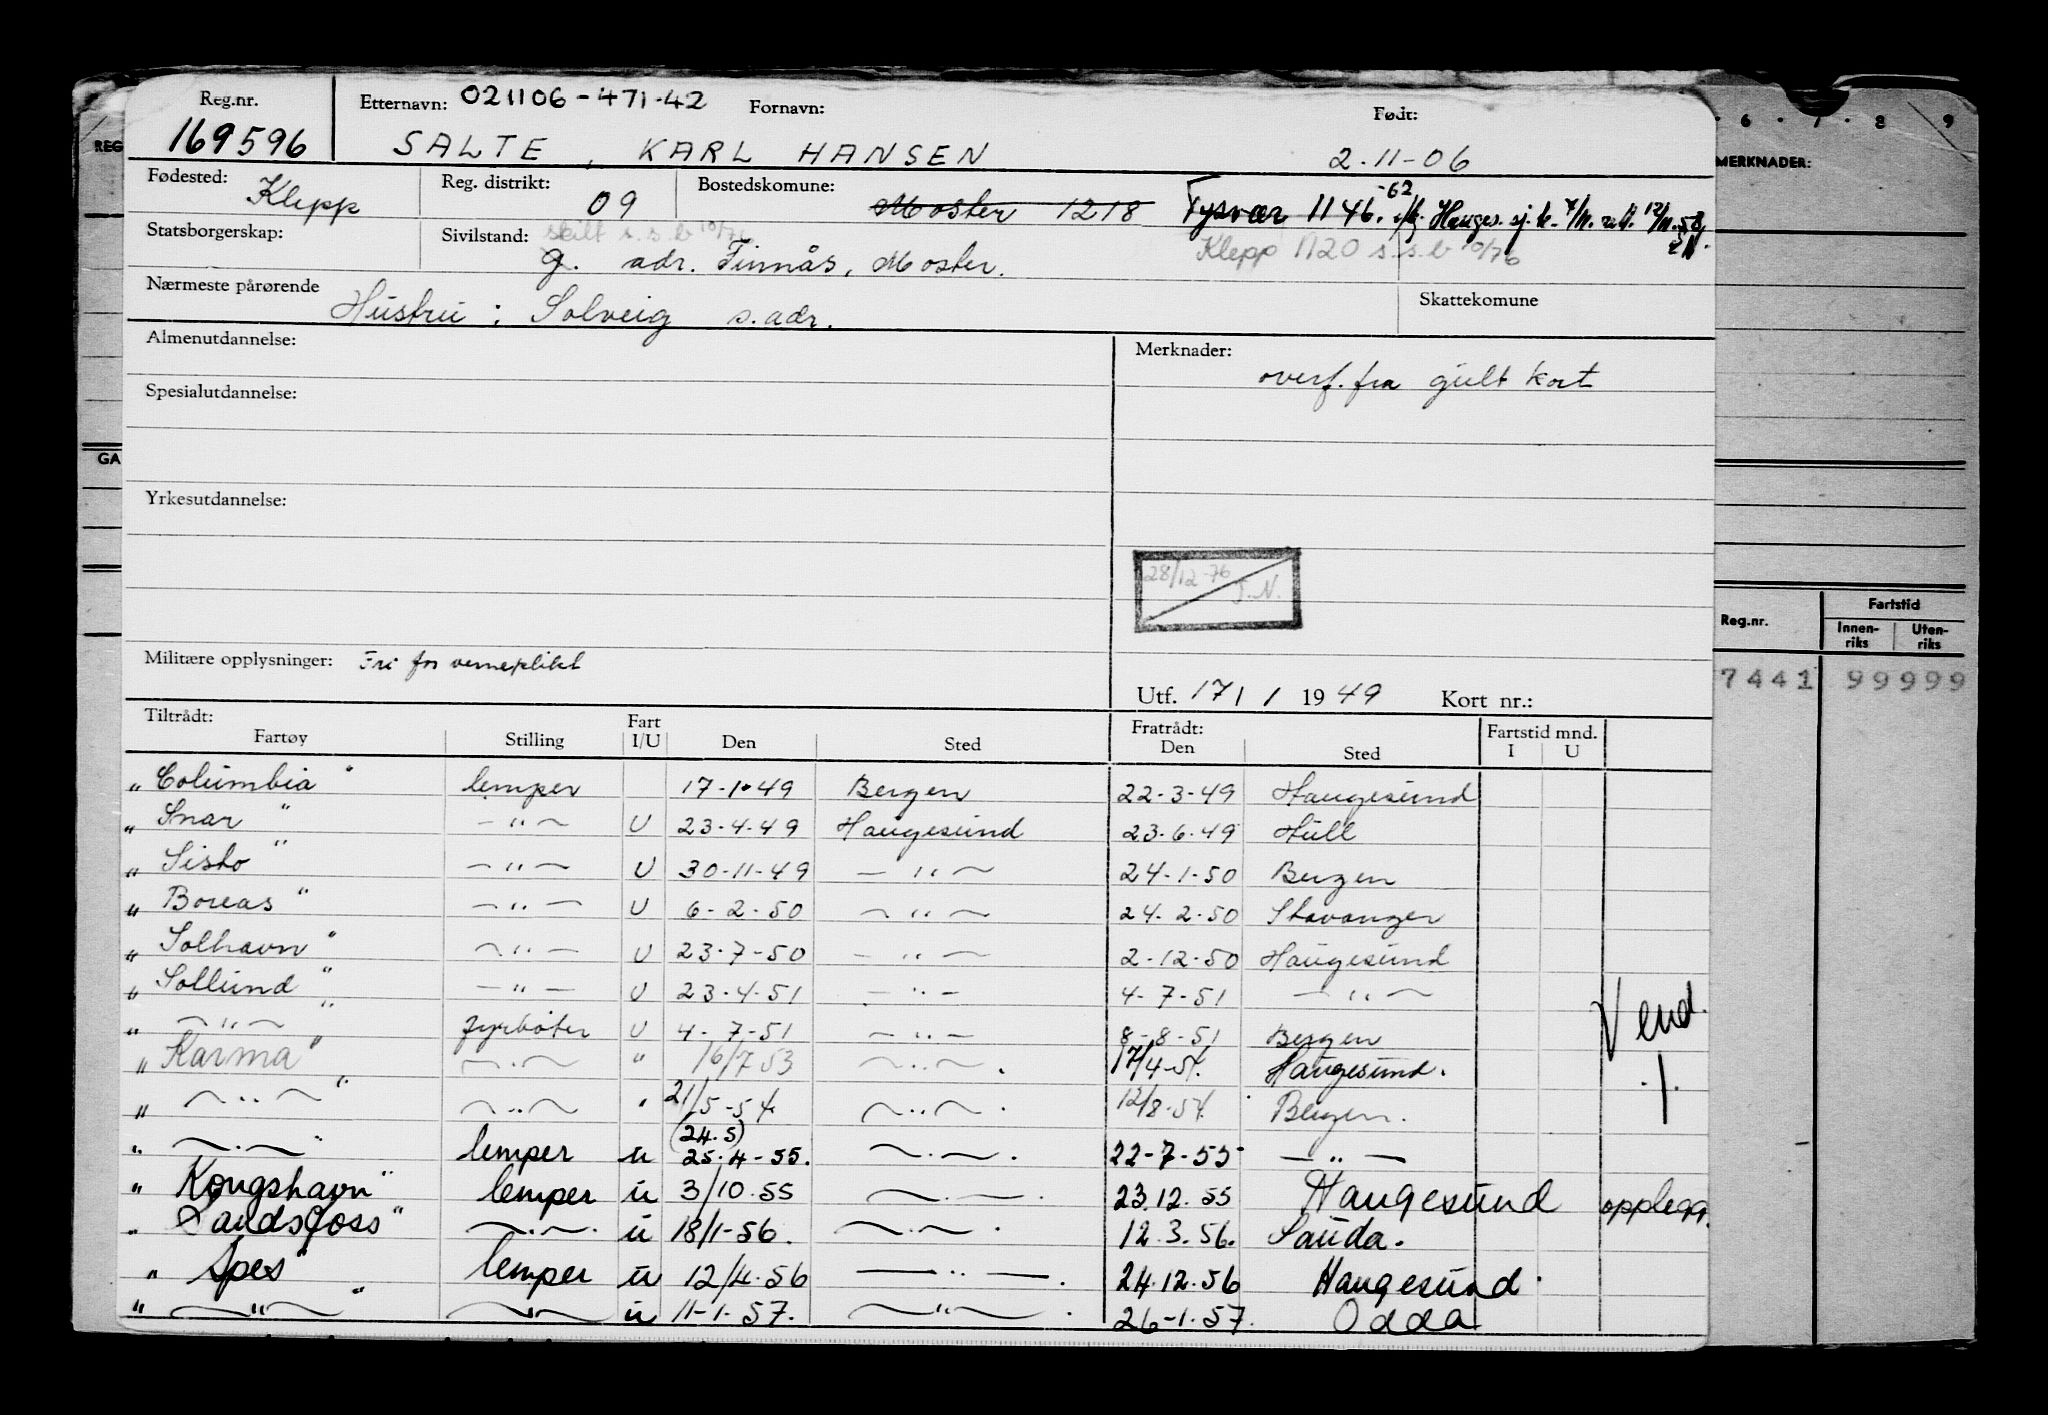 Reg.nr. Etternavn: 021106-471-42 Fornavn: Født:
169596 SALTE, KARL HANSEN 2.11-06
Fødested: Klepp Reg. distrikt: 09 Bostedskomune: Moster 1218 Tysvær 1146. -62 Hauges. sj.k.
Statsborgerskap: Sivilstand: skilt s.s.b 10/76 Klepp 1120 s.s.b 10/76
g. adr. Finnås, Moster.
Nærmeste pårørende Hustru: Solveig s.adr. Skattekomune
Almenutdannelse: Merknader:
overf. fra gult kort
Spesialutdannelse:
Yrkesutdannelse:
28/12-76 J.N.
Militære opplysninger: Fri for verneplikt
Utf. 17/1 1949 Kort nr.:
Tiltrådt: Fart Fratrådt: Fartstid mnd.
Fartøy Stilling I/U Den Sted Den Sted I U
"Columbia" lemper 17-1-49 Bergen 22-3-49 Haugesund
"Snar" -"- U 23-4-49 Haugesund 23-6-49 Hull
"Sisto" -"- U 30-11-49 -"- 24-1-50 Bergen
"Boreas" -"- U 6-2-50 -"- 24-2-50 Stavanger
"Solhavn" -"- U 23-7-50 -"- 2-12-50 Haugesund
"Sollund" -"- U 23-4-51 -"- 4-7-51 -"-
" -"- " fyrbøter U 4-7-51 -"- 8-8-51 Bergen
"Karma" -"- " 16/7 53 -"- 17/4-54. Haugesund.
" -"- " -"- " 21/5-54 -"- 12/8-54. Bergen.
(24.5)
" -"- " lemper u 25-4-55. -"- 22-7-55 -"-
"Kongshavn" lemper u 3/10.55 -"- 23.12.55 Haugesund opplegg.
"Sandsfoss" -"- u 18/1-56. -"- 12.3.56. Sauda.
"Spes" lemper u 12/4.56 -"- 24.12.56 Haugesund
" -"- " -"- u 11-1-57. -"- 26-1-57. Odda
Vend.
./.
REG
GA
6 . 7 . 8 9
MERKNADER:
Reg.nr. Fartstid
Innen-riks Uten-riks
7441 99999